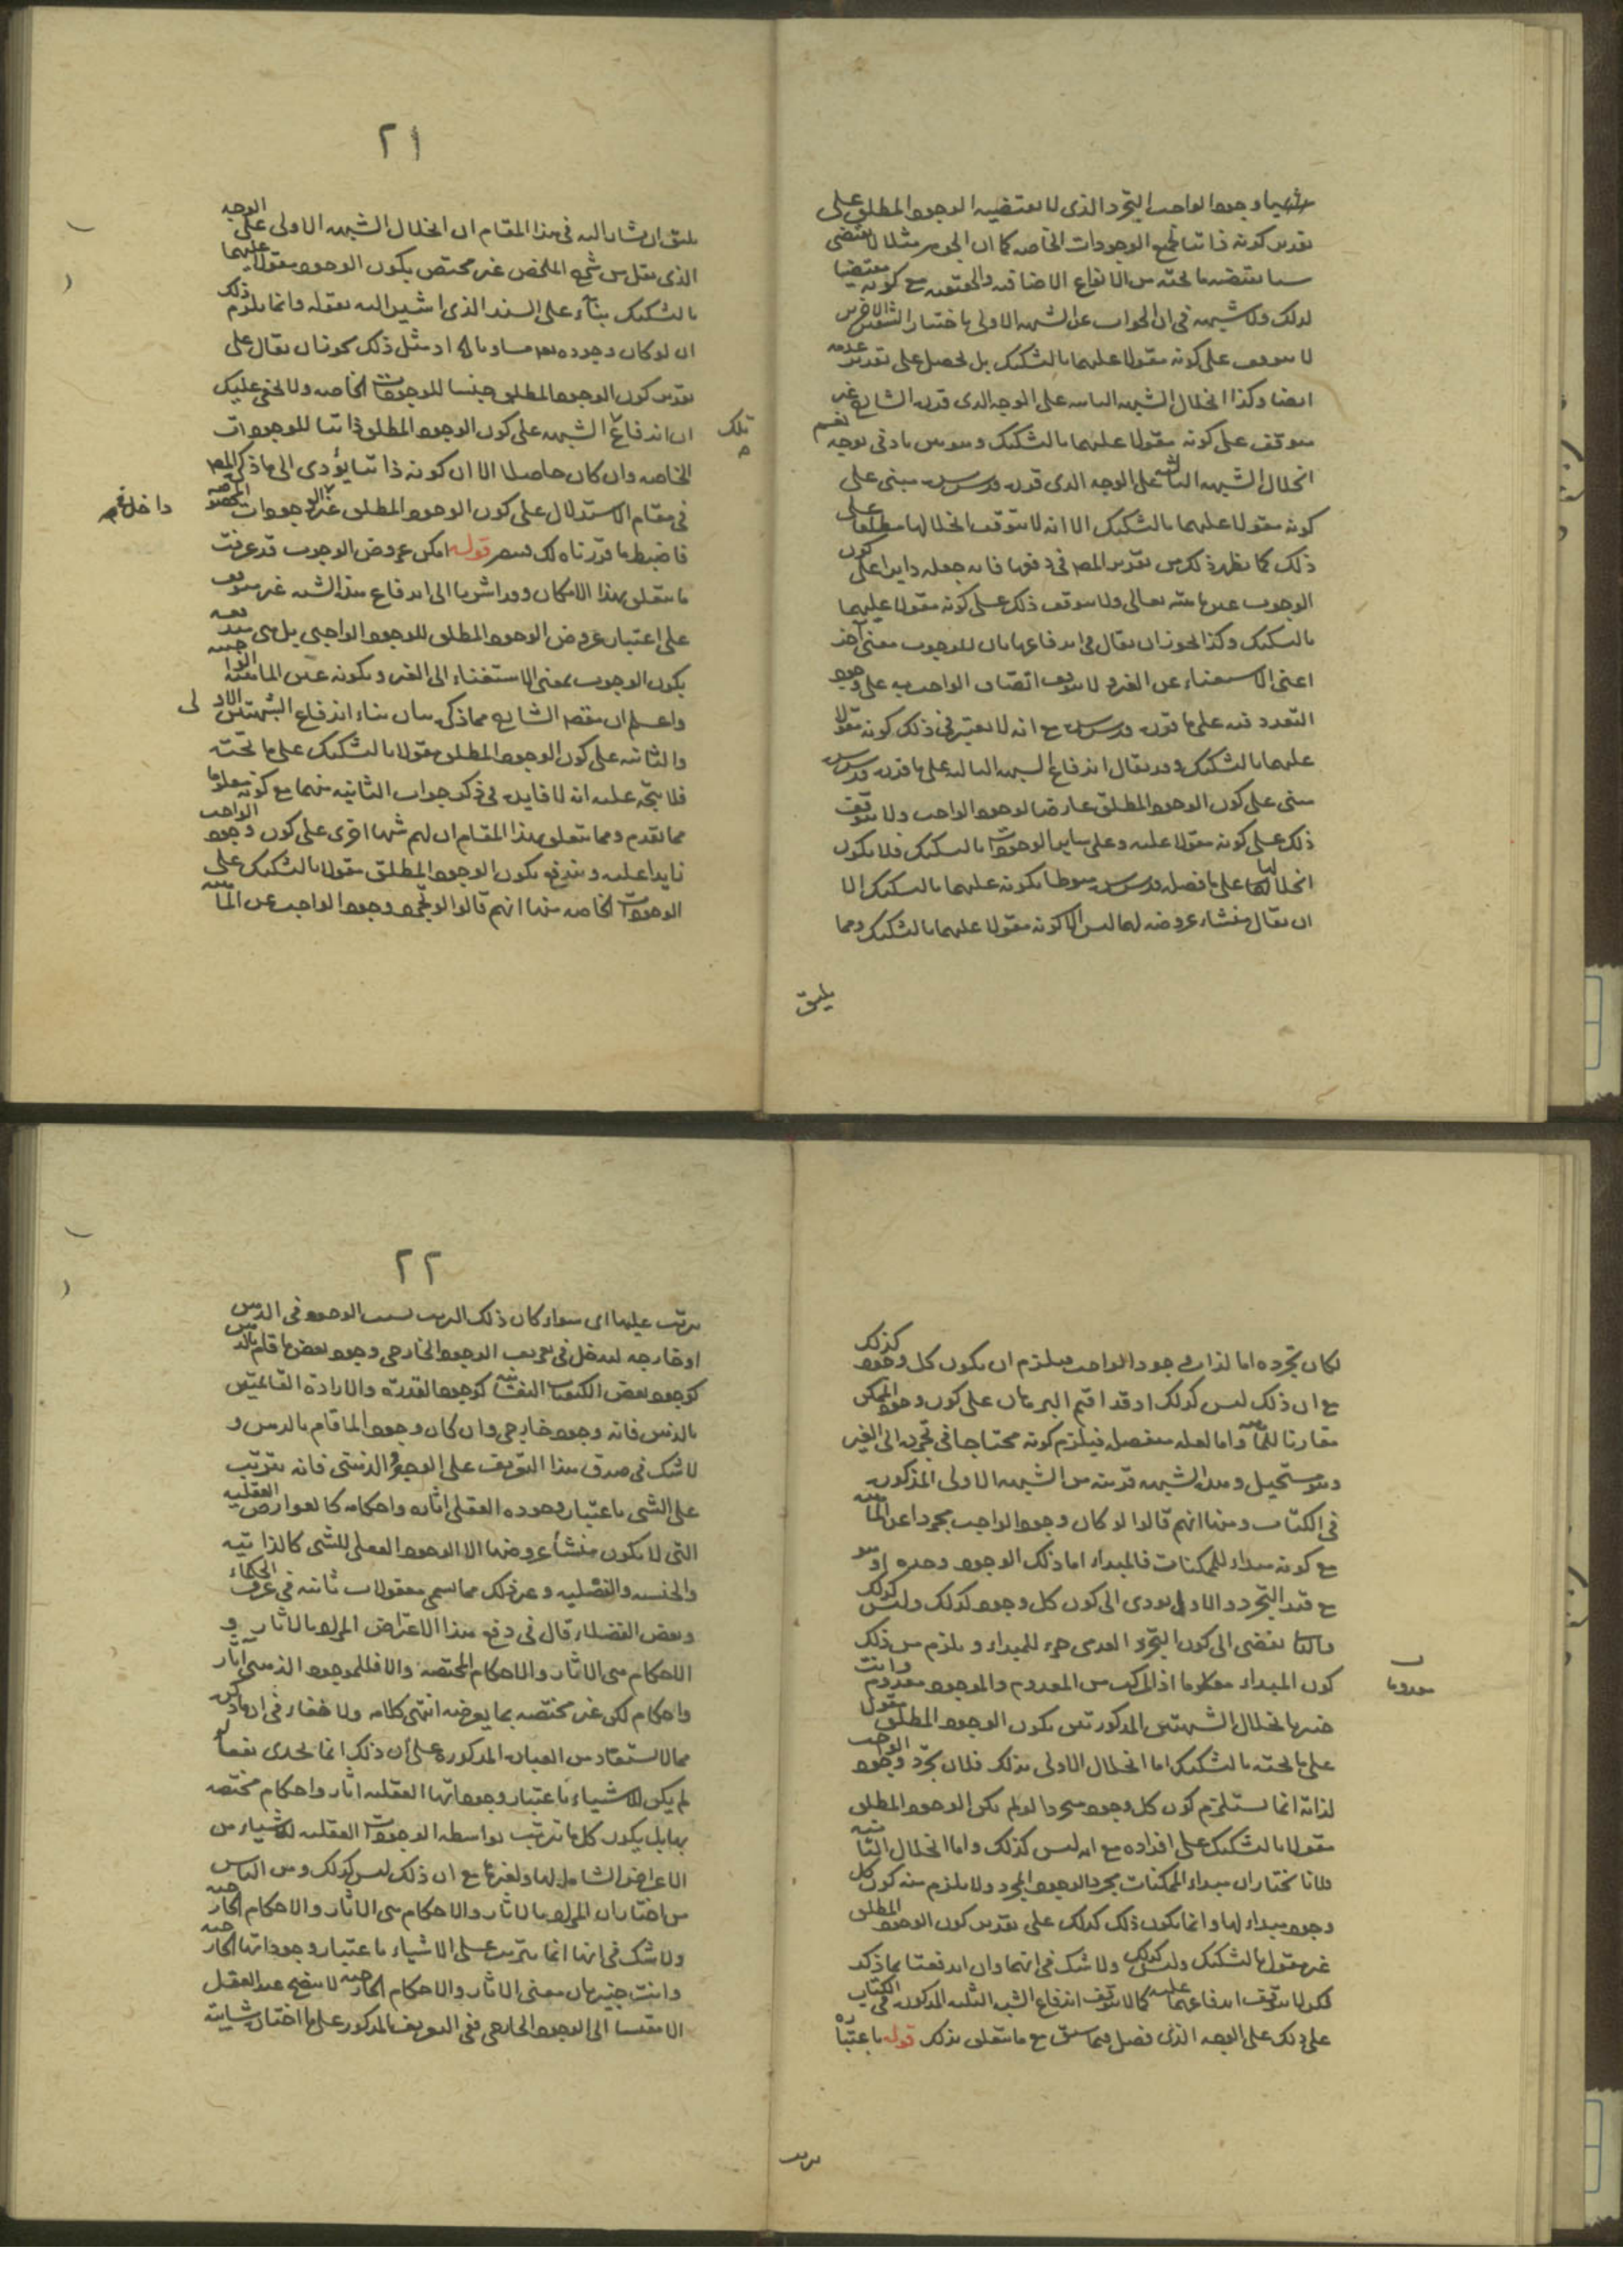 شيئا وجود الواجب التجرد الذى لا يقتضيه الوجود المطلق على
تقدير كونه ذاتيا لجميع الوجودات الخاصه كما ان الجوهر مثلا لا يقتضى
يقتضيه ما تحته من الانواع الاضافيه والحقيقيه مع كونه مقتضيا
لذلك ولا شبهه فى ان الجواب عن الشبهه الاولى باختيار الشق الاخير
لا يتوقف على كونه مقولا عليهما بالتشكيك بل يحصل على تقدير عدمه
ايضا وكذا انحلال الشبهه الثانيه على الوجه الذى قرره الشارح غير
متوقف على كونه مقولا عليهما بالتشكيك وهو بين بادنى توجه نعم
انحلال الشبهه الثالثه على الوجه الذى قرره قدس سره مبنى على
كونه مقولا عليهما بالتشكيك الا انه لا يتوقف انحلالها مطلقا على
ذلك كما يظهر ذلك من تقرير المصر فى دفعها فانه جعله دايرا على كون
الوجوب عين ماهيته تعالى ولا يتوقف ذلك على كونه مقولا عليهما
بالتشكيك وكذا يجوز ان يقال فى اندفاعها بان للوجوب معنى آخر
اعنى الاستغناء عن الغير ولا يتوقف اتصاف الواجب به على وجود
التعدد فيه على ما قرره قدس سره مع انه لا يعتبر فى ذلك كونه مقولا
عليهما بالتشكيك وقد يقال اندفاع الشبهه الثالثه على ما قرره قدس سره
مبنى على كون الوجود المطلق عارضا لوجود الواجب ولا يتوقف
ذلك على كونه مقولا عليه وعلى ساير الوجودات بالتشكيك فلا يكون
انحلالها على ما فصله قدس سره منوطا بكونه عليهما بالتشكيك الا
ان يقال منشاء عروضه لهما ليس الا كونه مقولا عليهما بالتشكيك ومما
يليق
٢١
يليق ان يشار اليه فى هذا المقام ان انحلال الشبهه الاولى على الوجه
الذى نقل من شرح الملخص غير مختص بكون الوجود مقولا عليهما
بالتشكيك بناء على السند الذى اشير اليه بقوله وانما يلزم ذلك
ان لو كان وجوده او مثل ذلك يجوز ان يقال على
تقدير كون الوجود المطلق جنسا للوجودات الخاصه ولا يخفى عليك
ان اندفاع الشبهه على كون الوجود المطلق ذاتيا للوجودات
تلك
الخاصه وان كان حاصلا الا ان كونه ذاتيا يؤدى الى ما ذكر المصر
فى مقام الاستدلال على كون الوجود المطلق غير الوجودات المخصوصه
داخل فى
فاضبط ما قررناه لك قوله امكن عروض الوجوب قد عرفت
ما يتعلق بهذا الامكان وقد اشرنا الى اندفاع هذا الشبه غير متوقف
على اعتبار عروض الوجود المطلق للوجود الواجبى بل هى مندفعه
بكون الوجوب بمعنى الاستغناء الى الغير وبكونه عين الماهيته
واعلم ان مقصد الشارح مما ذكر بيان بناء اندفاع الشبهتين الاولى
والثانيه على كون الوجود المطلق مقولا بالتشكيك على ما تحته
فلا يتجه عليه انه لا فايده فى ذكر جواب الثانيه منهما مع كونه معلوما
مما تقدم ومما يتعلق بهذا المقام ان لهم شبها اخرى على كون وجود الواجب
زايدا عليه ويندفع بكون الوجود المطلق مقولا بالتشكيك على
الوجودات الخاصه منها انهم قالوا لو تجرد وجود الواجب عن الماهيه
لكان تجرده اما لذات وجود الواجب فيلزم ان يكون كل وجود كذلك
مع ان ذلك ليس كذلك اذ قد اقيم البرهان على كون وجود الممكن
مقارنا للماهيه واما لعله منفصله فيلزم كونه محتاجا فى تجرده الى الغير
وهو مستحيل وهذه الشبهه قريبه من الشبهه الاولى المذكوره
فى الكتاب ومنها انهم قالوا لو كان وجود الواجب مجردا عن الماهيه
مع كونه مبداء للممكنات فالمبداء اما ذلك الوجود وحده او هو
مع قيد التجرد والاول يودى الى كون كل وجود كذلك وليس كذلك
والثانى يفضى الى كون التجرد العدمى جزء للمبداء ويلزم من ذلك
كون المبداء معدوما اذ المركب من المعدوم والموجود معدوم وانت
معدوما
خبير بانحلال الشبهتين المذكورتين بكون الوجود المطلق مقولا
على ما تحته بالتشكيك اما انحلال الاولى بذلك فلان تجرد وجود الواجب
لذاته انما يستلزم كون كل وجود مجردا لو لم يكن الوجود المطلق
مقولا بالتشكيك على افراده مع انه ليس كذلك واما انحلال الثانيه
فلانا نختار ان مبداء الممكنات مجرد الوجود المجرد ولا يلزم منه كون كل
وجود مبداء لها وانما يكون ذلك كذلك على تقدير كون الوجود المطلق
غير مقول بالتشكيك وليس كذلك ولا شك فى انهما وان اندفعتا بما ذكر
لكن لا يتوقف اندفاعهما عليه كما لا يتوقف اندفاع الشبه الثلثه المذكوره فى الكتاب
على ذلك على الوجه الذى فصل فيما سبق مع ما يتعلق بذلك قوله باعتباره
يترتب
٢٢
يترتب عليها اى سواء كان ذلك الترتب بسبب الوجود فى الذهن
او خارجه ليدخل فى تعريف الوجود الخارجى وجود بعض ما قام بالذهن
كوجود بعض الكيفيات النفسانيه كوجود القدره والاراده القائمتين
بالذهن فانه وجود خارجى وان كان وجود الما قام بالذهن و
لا شك فى صدق هذا التعريف على الوجود الذهنى فانه يترتب
على الشى باعتبار وجوده العقلى آثاره واحكامه كالعوارض العقليه
التى لا يكون منشأ عروضها الا الوجود العقلى للشى كالذاتيه
والجنسيه والفصليه وغير ذلك مما يسمى معقولات ثانيه فى عرف الحكماء
وبعض الفضلاء قال فى دفع هذا الاعتراض المراد بالاثار و
الاحكام هى الاثار والاحكام المختصه والا فللموجود الذهنى آثار
واحكام لكن غير مختصه بما يعرضه انتهى كلامه ولا خفاء فى ان هذا
مما لا يستفاد من العباره المذكوره على ان ذلك انما يجدى نفعا لو
لم يكن للاشياء باعتبار وجوداتها العقليه آثار واحكام مختصه
بها بل يكون كل ما ترتب بواسطه الوجودات العقليه للاشياء من
الاعراض الشامله لها ولغيرها مع ان ذلك ليس كذلك ومن الناس
من اختار ان المراد بالاثار والاحكام هى الاثار والاحكام الخارجيه
ولا شك فى انها انما يترتب على الاشياء باعتبار وجوداتها الخارجيه
وانت خبير بان معنى الاثار والاحكام الخارجيه لا يتضح عند العقل
الا مقيسا الى الوجود الخارجى ففى التعريف المذكور على ما اختاره شايبه